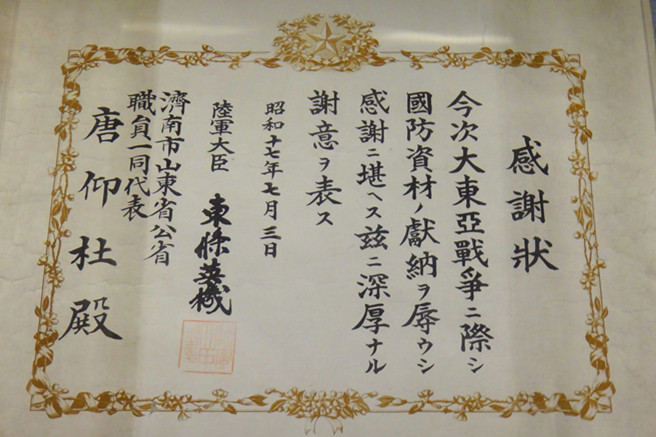 感謝狀
今次大東亞戰爭ニ際シ
國防資材ノ獻納ヲ辱ウシ
感謝ニ堪ヘス玆ニ深厚ナル
謝意ヲ表ス
昭和十七年七月三日
陸軍大臣 東條英機
濟南市山東省公省
職員一同代表
唐仰杜殿